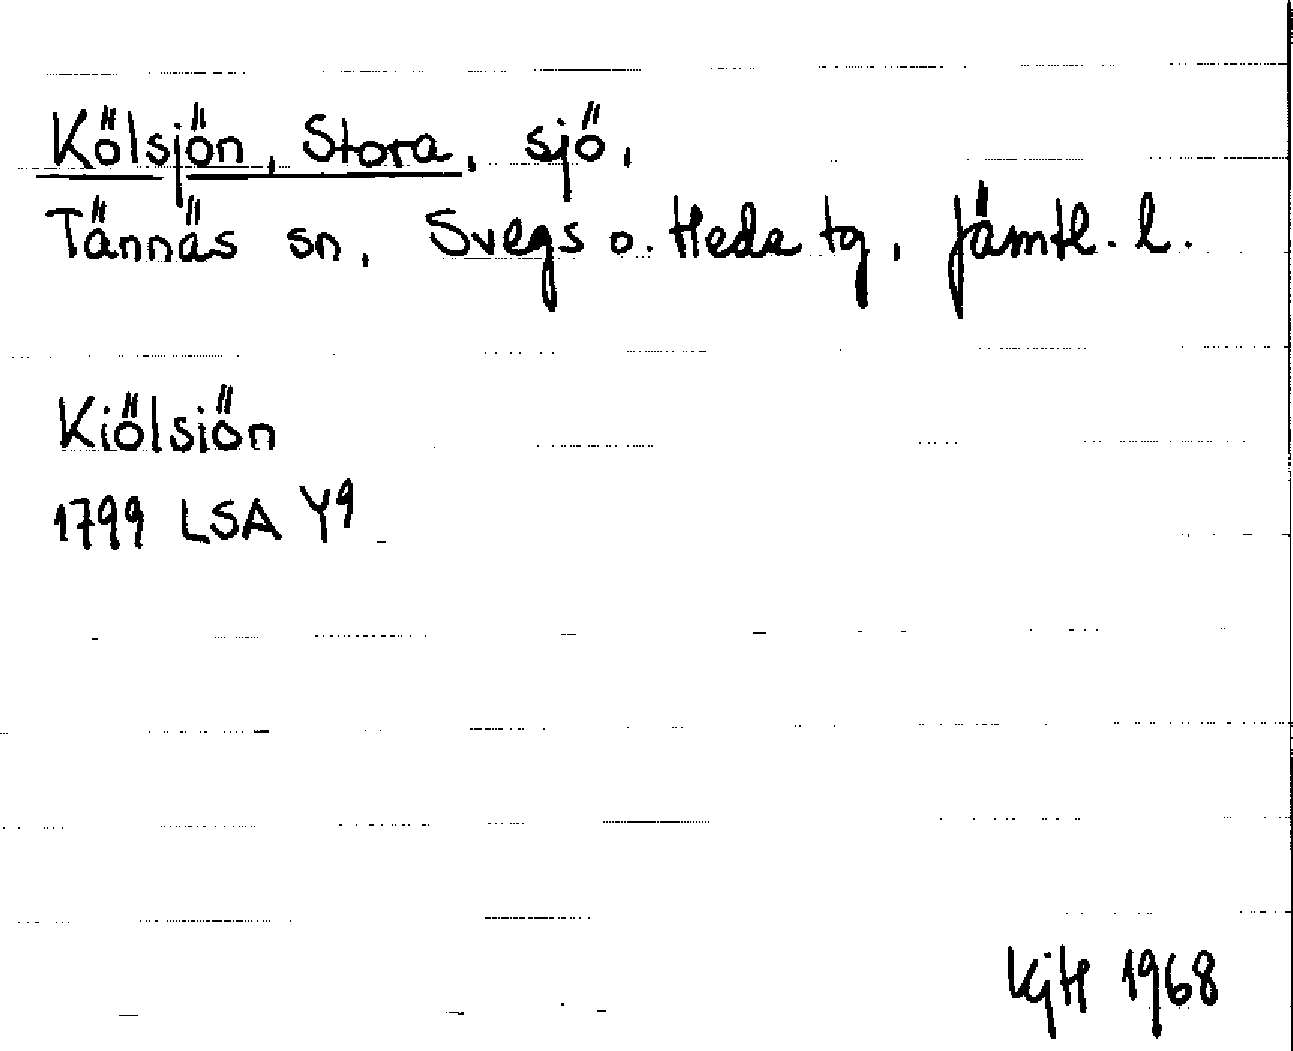 Kölsjön, Stora, sjö,
Tännäs sn, Svegs o. Heda tg, Jämtl. l.
Kiölsiön
1799 LSA Y9
KjH 1968